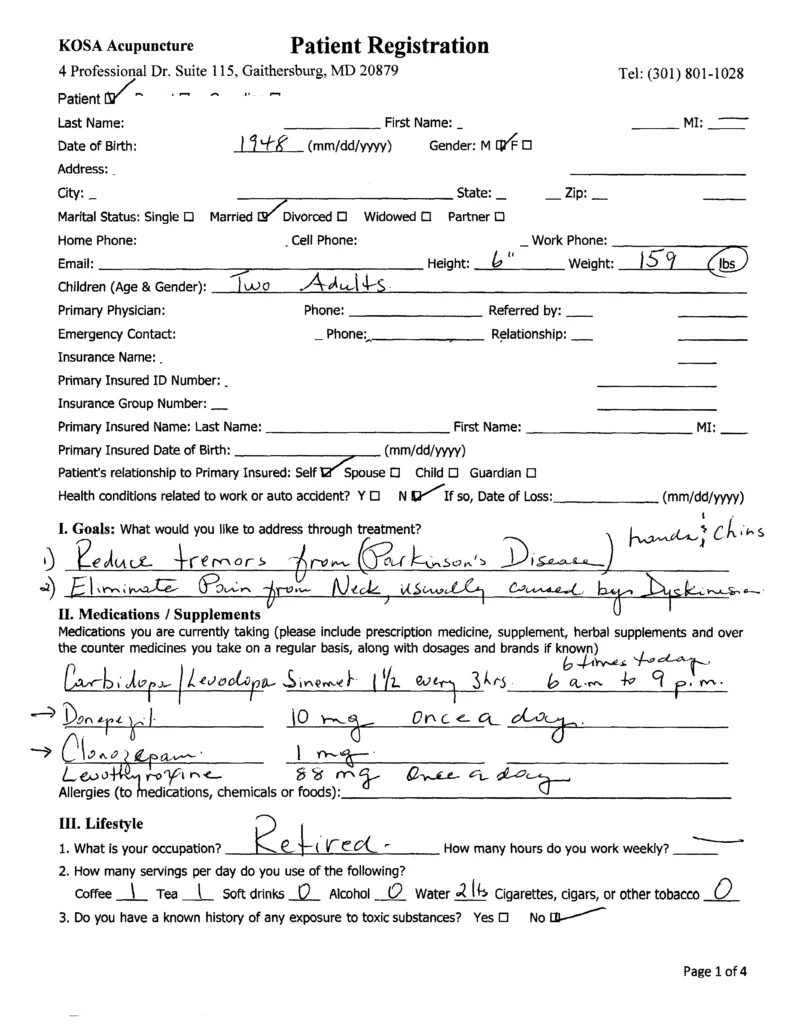 KOSA Acupuncture Patient Registration
4 Professional Dr. Suite 115, Gaithersburg, MD 20879 Tel: (301) 801-1028
Patient ☑
Last Name: ____ First Name: ____ MI: —
Date of Birth: 1948 (mm/dd/yyyy) Gender: M ☑ F ☐
Address:
City: ____ State: ____ Zip: ____
Marital Status: Single ☐ Married ☑ Divorced ☐ Widowed ☐ Partner ☐
Home Phone: Cell Phone: ____ Work Phone: ____
Email: ____ Height: 6" Weight: 159 lbs
Children (Age & Gender): Two Adults
Primary Physician: Phone: ____ Referred by: ____
Emergency Contact: Phone: ____ Relationship: ____
Insurance Name:
Primary Insured ID Number:
Insurance Group Number:
Primary Insured Name: Last Name: ____ First Name: ____ MI: ____
Primary Insured Date of Birth: ____ (mm/dd/yyyy)
Patient's relationship to Primary Insured: Self ☑ Spouse ☐ Child ☐ Guardian ☐
Health conditions related to work or auto accident? Y ☐ N ☑ If so, Date of Loss: ____ (mm/dd/yyyy)
I. Goals: What would you like to address through treatment?
hands & Chins
1) Reduce tremors from (Parkinson's Disease)
2) Eliminate Pain from Neck, usually caused by Dyskinesia
II. Medications / Supplements
Medications you are currently taking (please include prescription medicine, supplement, herbal supplements and over
the counter medicines you take on a regular basis, along with dosages and brands if known)
6 times today
Carbidopa/Levodopa Sinemet 1 1/2 every 3hrs. 6 a.m to 9 p.m.
→ Donepezil 10 mg once a day.
→ Clonozepam. 1 mg.
Levothyroxine 88 mg Once a day
Allergies (to medications, chemicals or foods): ____
III. Lifestyle
1. What is your occupation? Retired - How many hours do you work weekly? —
2. How many servings per day do you use of the following?
Coffee 1 Tea 1 Soft drinks 0 Alcohol 0 Water 2 lts Cigarettes, cigars, or other tobacco 0
3. Do you have a known history of any exposure to toxic substances? Yes ☐ No ☑
Page 1 of 4